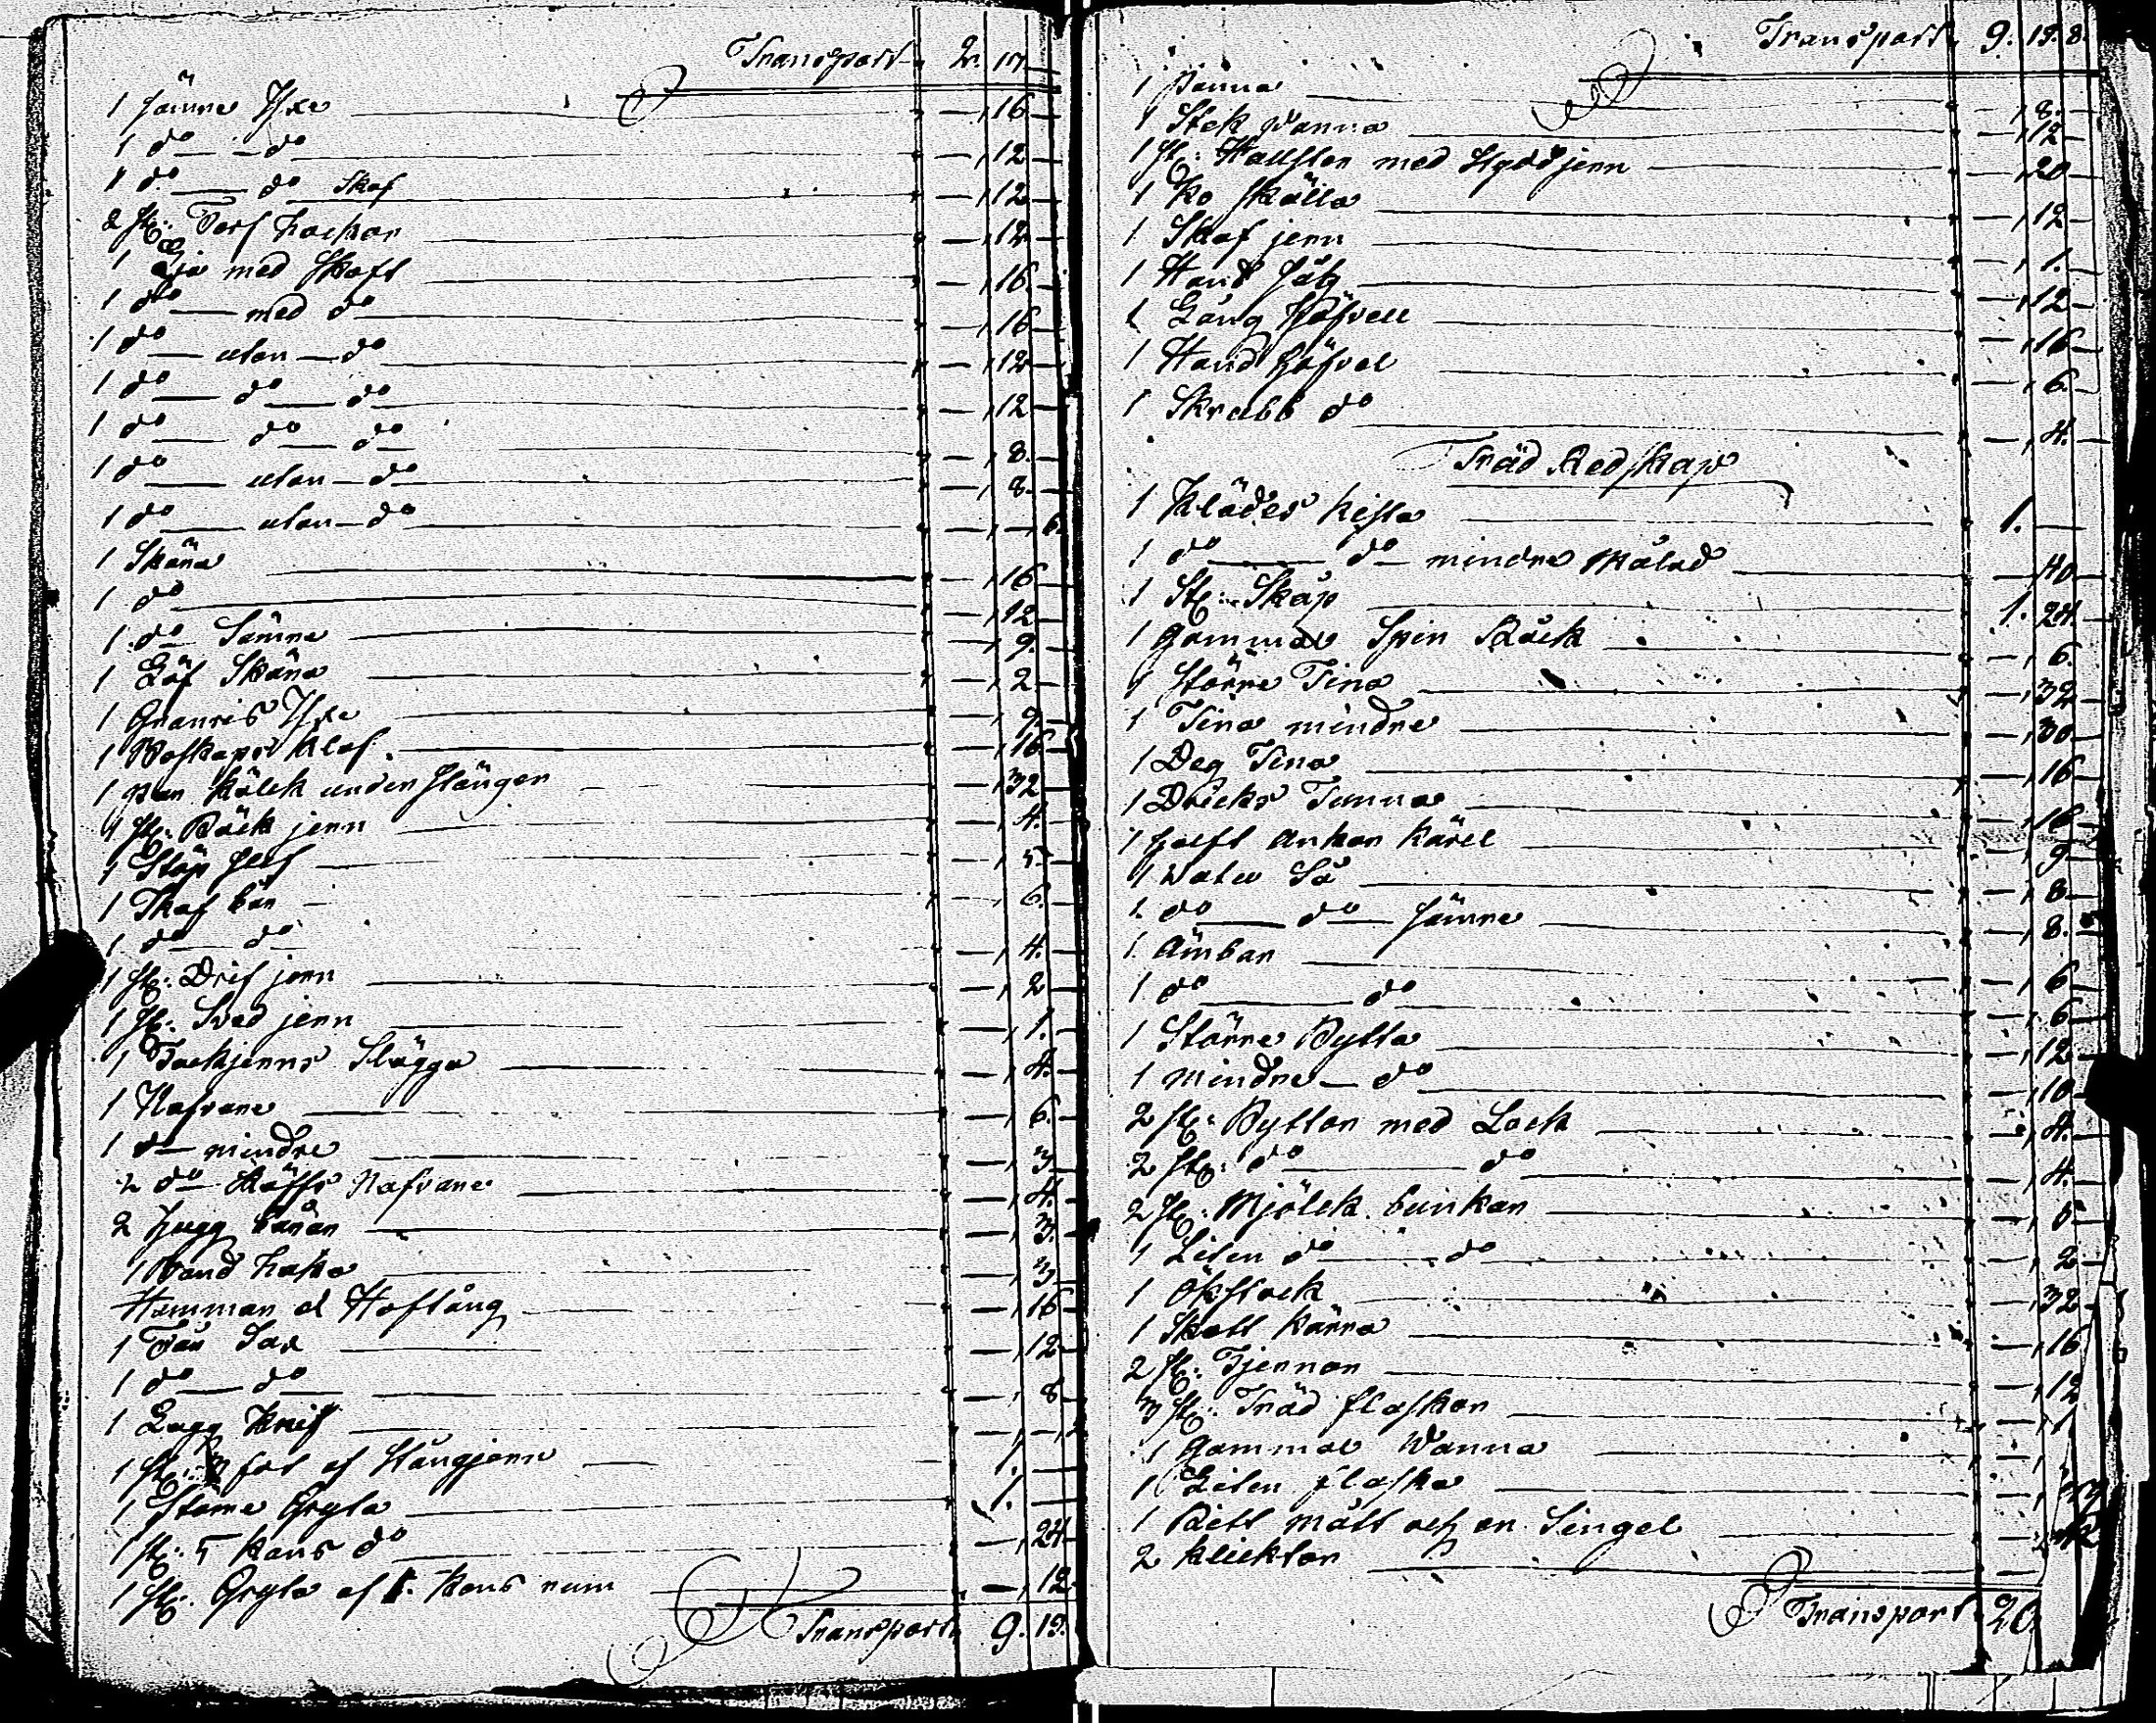 Transport 2. 17
1 sämre Yxe — „16 —
1 do — do — „12 —
1 do — do Skaf — „12 —
2 st: Torf hackor — „12 —
1 Lja med Skaft — „16 —
1 do — med do — „16 —
1 do — utan — do — „12 —
1 do — do — do — „12 —
1 do — do — do — „8. —
1 do — utan — do — „8. —
1 do — utan — do — „ — 6.
1 Skära — „16 —
1 do — „12 —
1 do Sämre — „9. —
1 Löf Skära — „2. —
1 Granris Yxe — „9. —
1 Boskaps Klaf — „16 —
1 par kälck under stänger — „32 —
1 st: Bäck jern — „4. —
1 Stöp slef — „5 —
1 Skaf bår — „6. —
1 do — do — „4. —
1 st: Drif jern — „2 —
1 st: Sved jern — „1. —
1 Tackjerns Slägga — „4. —
1 Nafvare — „6. —
1 do mindre — „3 —
2 do Nafvare — „4. —
2 hugg — „3. —
1 Band hake — „3 —
Hammar ol Hoftång — „16 —
1 Får Sax — „12 —
1 do — do — „8 —
1 Lagg Knif
1 st: fot af Stångjern — 1. —
1 Större Gryta — 1. —
1 st: 5 kans do — „24 —
1 st: Gryta af 1. Kans rum — „12
Transport 9. 19.
Transport 9. 19. 8
1 Panna — „8. —
1 Stek panna — „12 —
1 st: Hallster med jern — „20 —
1 Ko skälla — „12 —
1 Skaf jern — „1. —
1 Hand såg — „12 —
1 Lång Höfvell — „16 —
1 Hand höfvel — „6. —
1 Skrubb do — „4. —
Träd Redskap
1 Kläder kista — 1. —
1 do — do — mindre målad — „40 —
1 St: Skåp — 1. 24.
1 gammal Spin Råck — „6.
1 större Tina — „32
1 Tina mindre — „30.
1 Deg Tina — „16
1 Dricks Tunna — „16
1 halft ankar kärel — „9
1 watu Så — „8
1 do — do — sämre — „8.
1 ämbar — „6
1 do — do — „6
1 Större Bytta — „12
1 mindre — do — „10
2 st: Byttor med Lock — „4.
2 st: do — do — „4.
2 st: Mjölck bunkar
1 Liten do — do — „2
1 ökstock — „32
1 Skott kärra — „16
2 st: Tjernor — „12
3 st: Träd flaskor
1 gammal Wanna
1 Liten flaska
1 Bett mått och en Singel
2 klicktor
Transport 20